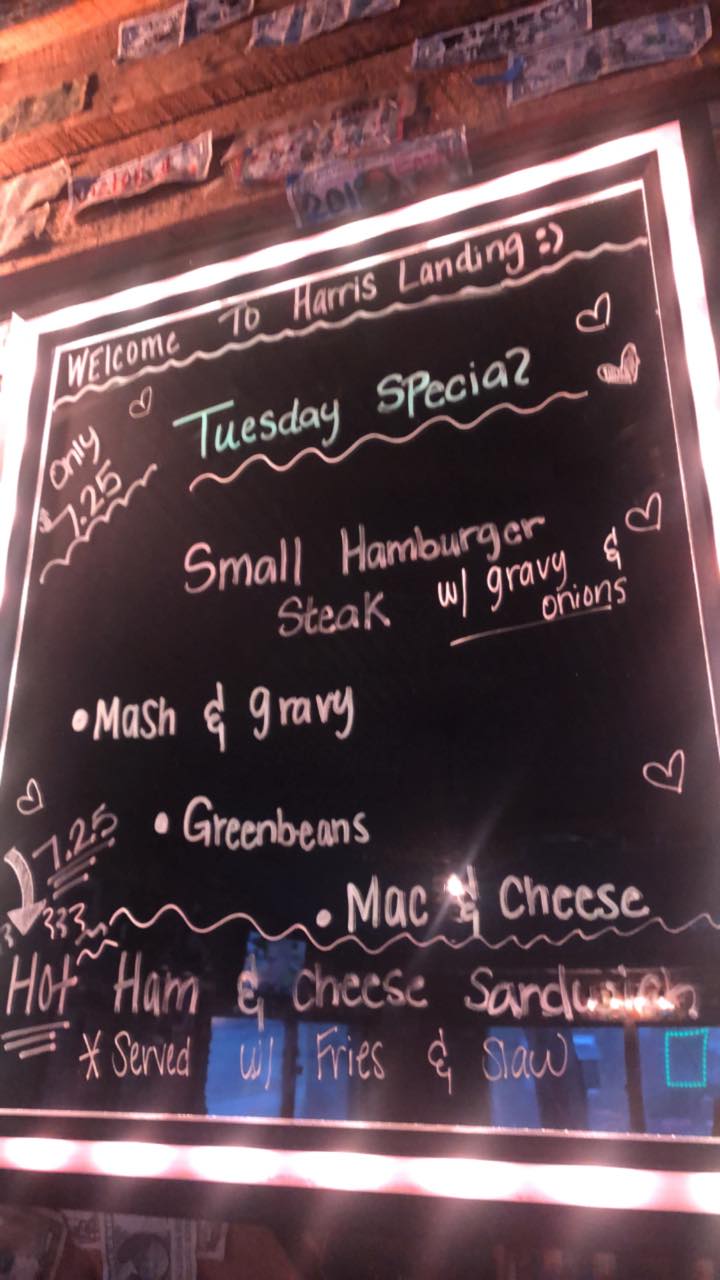 Welcome To Harris Landing :)
Tuesday Special
only
$7.25
Small Hamburger
Steak w/ gravy &
onions
• Mash & gravy
7.25
• Greenbeans
• Mac & Cheese
Hot Ham & Cheese Sandwich
* Served w/ Fries & Slaw
201